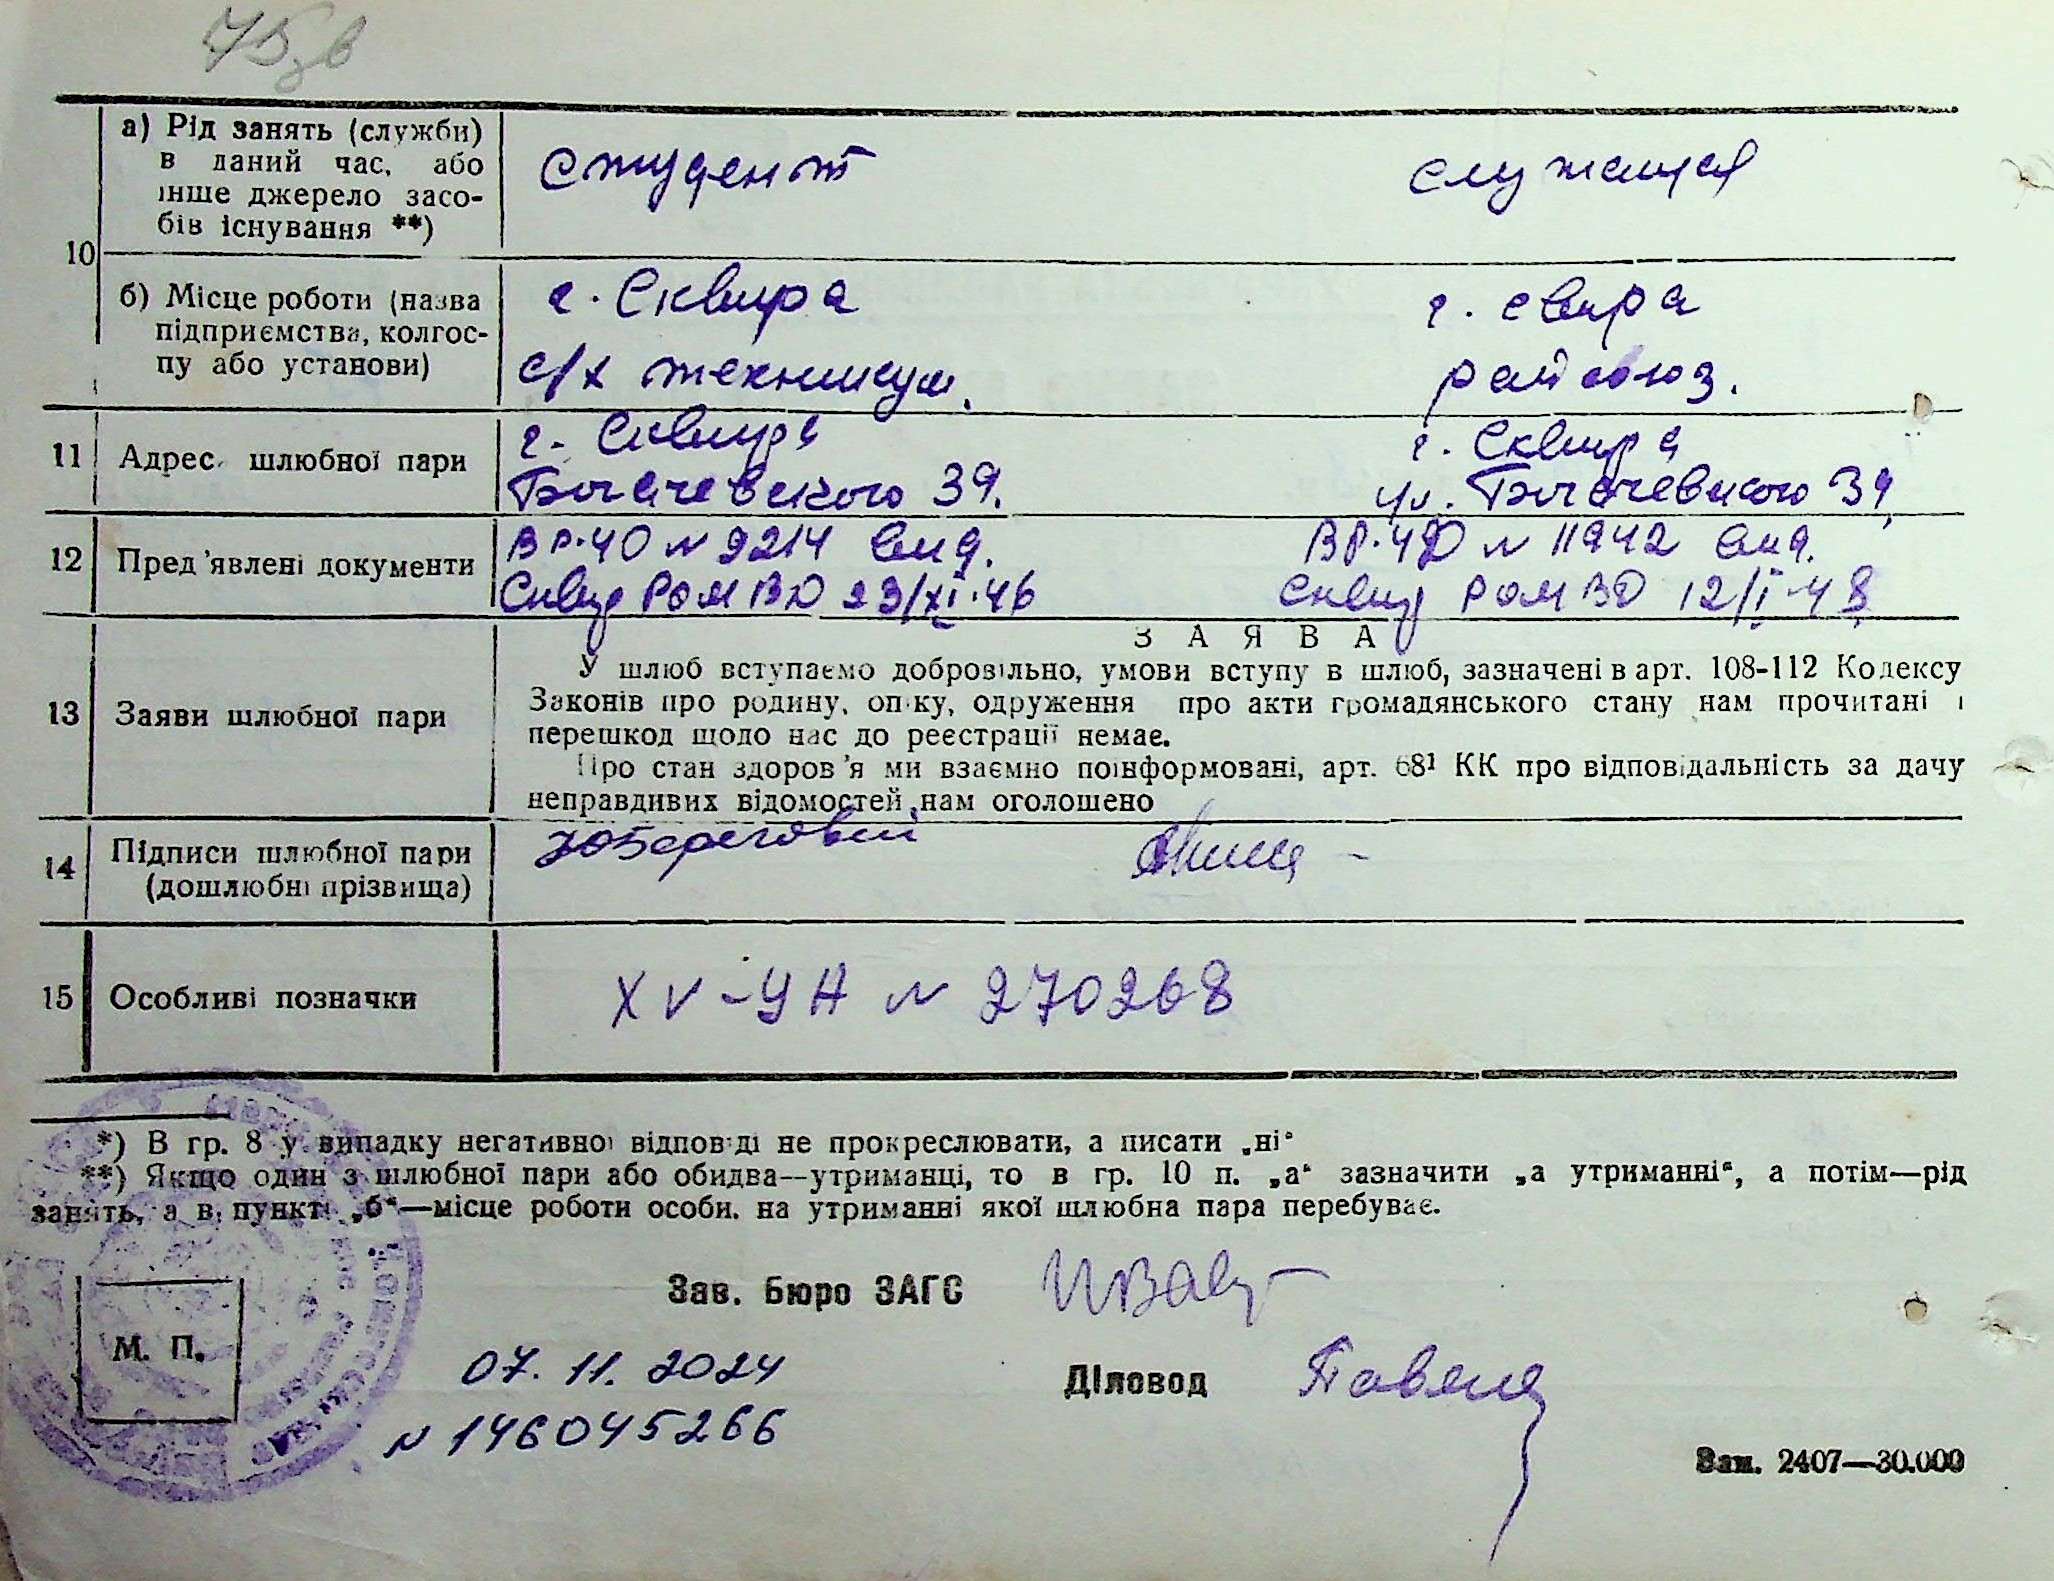 75 зв
а) Рід занять (служби) в даний час, або інше джерело засобів існування **)
студент
служащая
10
б) Місце роботи (назва підприємства, колгоспу або установи)
г. Сквира
г. Свира
с/х техникум.
райсоюз.
11 Адрес шлюбної пари
г. Сквира
г. Сквира
Богачевского 39.
ул. Богачевского 39
12 Пред'явлені документи
ВР-40 № 9214 выд.
ВР-40 № 11942 выд.
Сквир РОМВД 23/XI-46
Сквир РОМВД 12/I-48
ЗАЯВА
13 Заяви шлюбної пари
У шлюб вступаємо добровільно, умови вступу в шлюб, зазначені в арт. 108-112 Кодексу
Законів про родину, опіку, одруження про акти громадянського стану нам прочитані і
перешкод щодо нас до реєстрації немає.
Про стан здоров'я ми взаємно поінформовані, арт. 68¹ КК про відповідальність за дачу
неправдивих відомостей нам оголошено
14 Підписи шлюбної пари (дошлюбні прізвища)
Береговий
15 Особливі позначки
XV-УН № 270268
*) В гр. 8 у випадку негативної відповіді не прокреслювати, а писати „ні“
**) Якщо один з шлюбної пари або обидва—утриманці, то в гр. 10 п. „а“ зазначити „а утриманні“, а потім—рід
занять, а в пункті „б“—місце роботи особи, на утриманні якої шлюбна пара перебуває.
Зав. Бюро ЗАГС
М. П.
07.11.2024
Діловод
№ 146045266
Зам. 2407—30.000